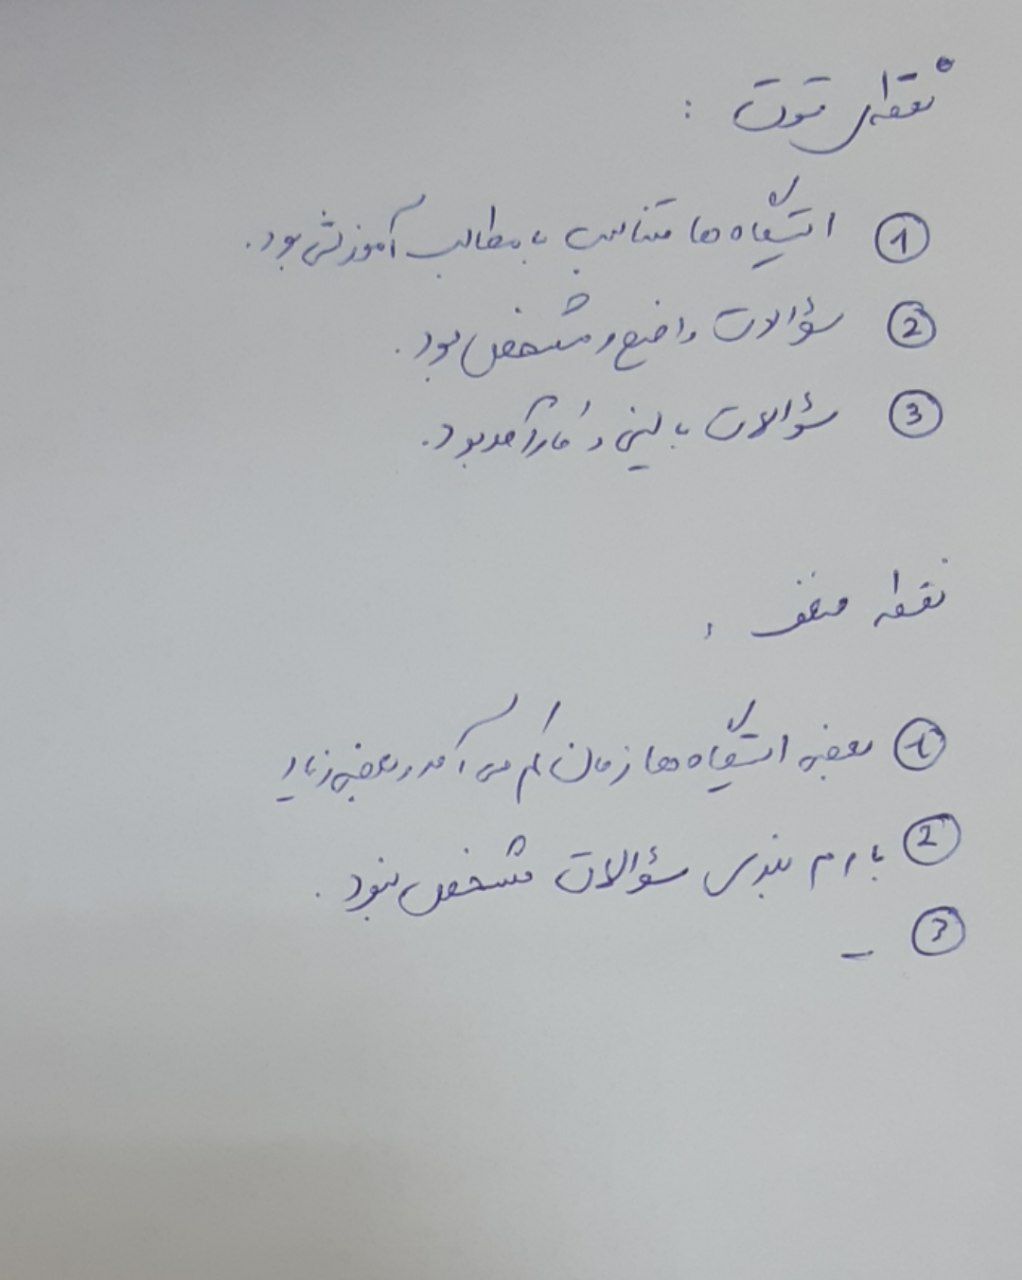 نقطه‌ی قوت :
① استیگاه ها متناسب با مطالب آموزشی بود.
② سؤالات واضح و مشخص بود.
③ سؤالات بالینی و کارآمد بود.
نقطه ضعف :
① بعضی استیگاه ها زمان کم می آمد و بعضی زیاد
② بارم بندی سؤالات مشخص نبود.
③ –